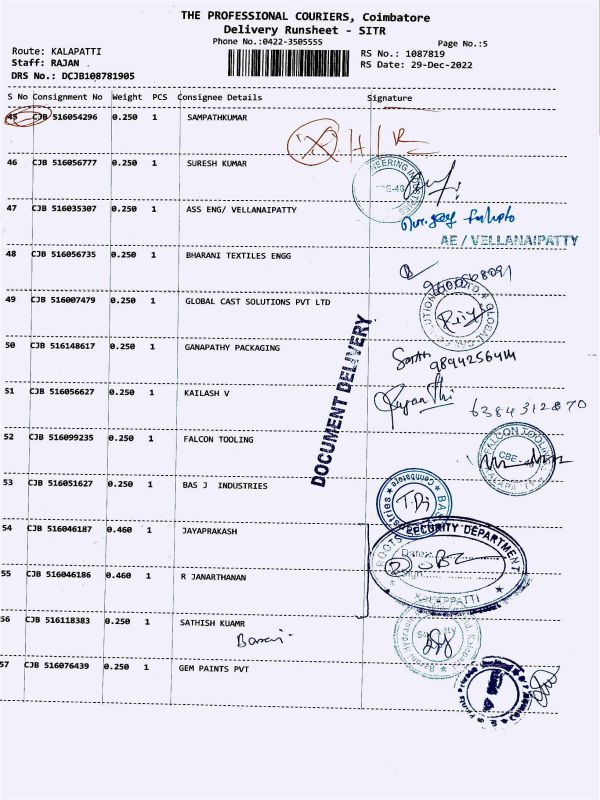 THE PROFESSIONAL COURIERS, Coimbatore
Delivery Runsheet - SITR
Phone No.:0422-3505555
Page No.:5
Route: KALAPATTI
RS No.: 1087819
Staff: RAJAN
RS Date: 29-Dec-2022
DRS No.: DCJB108781905
S No Consignment No Weight PCS Consignee Details Signature
45 CJB 516054296 0.250 1 SAMPATHKUMAR
46 CJB 516056777 0.250 1 SURESH KUMAR
47 CJB 516035307 0.250 1 ASS ENG/ VELLANAIPATTY
AE / VELLANAIPATTY
48 CJB 516056735 0.250 1 BHARANI TEXTILES ENGG
49 CJB 516007479 0.250 1 GLOBAL CAST SOLUTIONS PVT LTD
DOCUMENT DELIVERY
50 CJB 516148617 0.250 1 GANAPATHY PACKAGING
9894256414
51 CJB 516056627 0.250 1 KAILASH V
6384312870
52 CJB 516099235 0.250 1 FALCON TOOLING
FALCON TOOLING
CBE
53 CJB 516051627 0.250 1 BAS J INDUSTRIES
54 CJB 516046187 0.460 1 JAYAPRAKASH
SECURITY DEPARTMENT
ROOTS
Date:
KALAPPATTI
55 CJB 516046186 0.460 1 R JANARTHANAN
56 CJB 516118383 0.250 1 SATHISH KUAMR
57 CJB 516076439 0.250 1 GEM PAINTS PVT